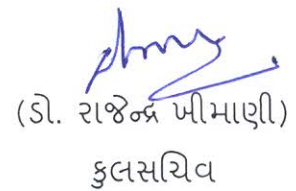 (ડો. રાજેન્દ્ર ખીમાણી)
કુલસચિવ